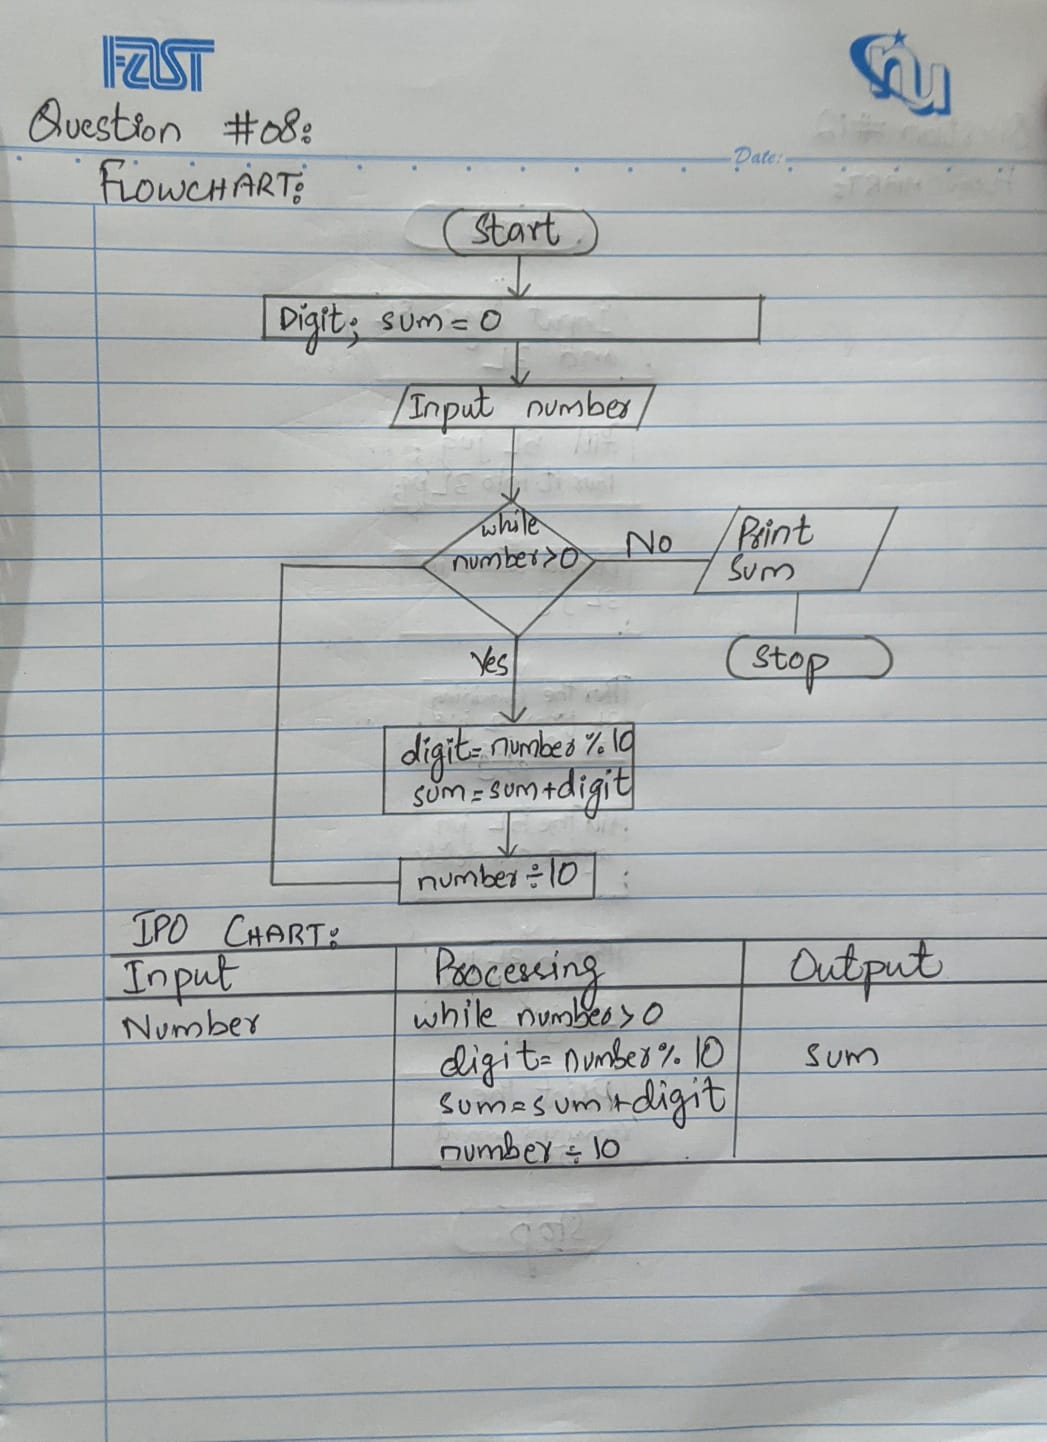 FAST
nu
Question #08:
Date:
FLOWCHART:
Start
Digit; sum = 0
Input number
while
number>0
No
Print
Sum
Yes
Stop
digit= number % 10
sum = sum+digit
number ÷ 10
IPO CHART:
Input Processing Output
Number while number > 0
digit= number % 10 sum
sum = sum + digit
number ÷ 10